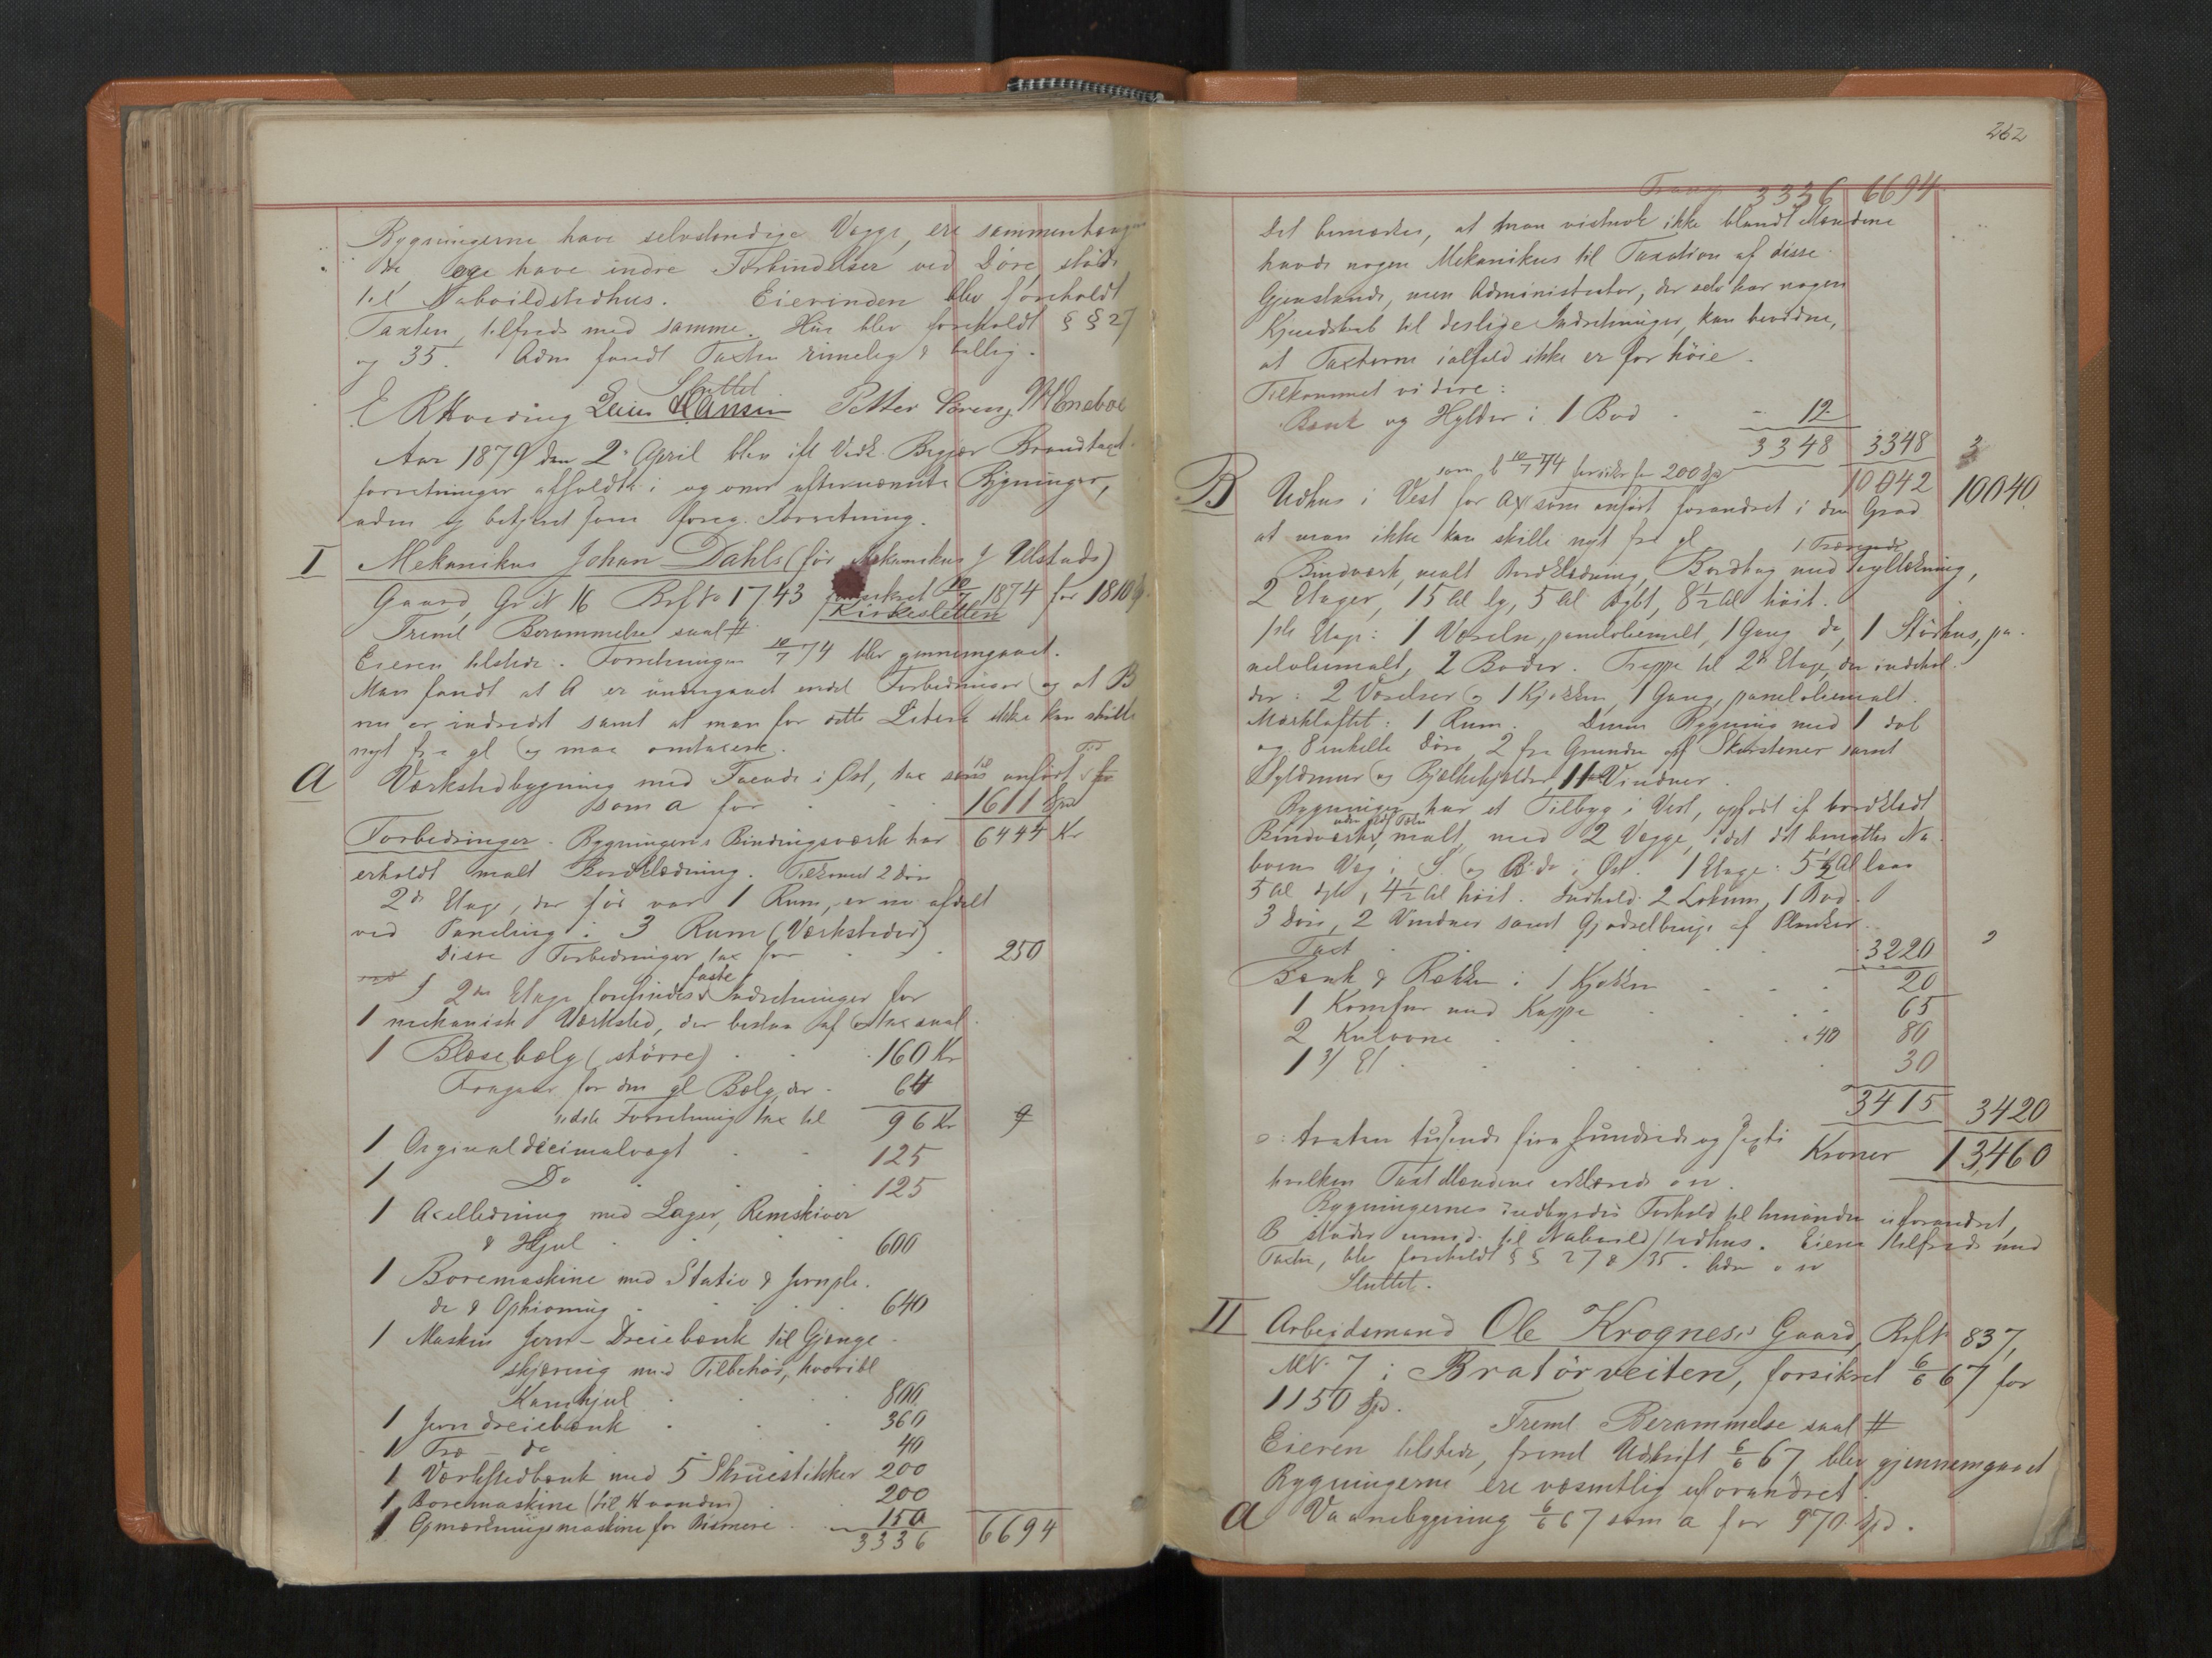 Bygningerne have selvstændige Vægge, ere sammenhængen
de og have indre Forbindelser ved Døre, støde
til Naboildstedhus. Eierinden blev foreholdt
Taxten, tilfreds med samme. Hun blev foreholdt § § 27
og 35. Adm fandt Taxten rimelig & billig.
Sluttet
E R Hveding Hansen Petter Sørens
Aar 1879 den 2 April blev ifl Vedk. Begjær Brandtaxt
forretninger afholdte i og over efternævnte Bygninger,
aden og betjent som foreg. Forretning.
I Mekanikus Johan Dahls (før Mekanikus J Ulstads)
Gaard, Gr N 16 Brfk 1743 forsikret 10/7 1874 for 1810 Spd.
Kirkesletten
Freml Berammelse saal #
Eieren tilstede. Forretningen 10/7 74 blev gjennemgaaet.
Man fandt at A er undergaaet endel Forbedringer og at B
nu er indredet samt at man for dette Litera ikke kan skille
nyt fra gl og maa omtaxere.
A Værkstedbygning med Facade i Øst, tax som anført
som a for . . . 1611 Spd
Forbedringer. Bygningens Bindingsværk har 6444 Kr
erholdt malt Bordklædning. Tilkommet 2 Døre
2de Etage, der før var 1 Rum, er nu afdelt
ved Paneling i 3 Rum (Værksteder)
Disse Forbedringer tax for . . 250
I 2den Etage forefindes faste Indretninger for
1 mekanisk Værksted, der bestaa af & tax saal.
1 Blæsebælg (større) . . 160 Kr
Fragaar for den gl Bælg, der . 64
sidste Forretning tax til 96 Kr
1 Orginal decimalvægt . . 125
1 Do . . 125
1 Axelledning med Lager, Remskiver
& Hjul . . . 600
1 Boremaskine med Stativ & Jernpla-
de & Ophising . . . 640
1 Maskin Jern-Dreiebænk til Gjænge-
skjæring med Tilbehør, hvoribl
Kamhjul . . 800
1 Jerndreiebænk . . 360
1 Træ - do . . 40
1 Værkstedbænk med 5 Skruestikker 200
1 Boremaskine (til Haanden) . . 200
1 Opmærkningsmaskine for Bismere . 150
3336 6694
262
Transp. 3336 6694
Det bemærkes, at man vistnok ikke blandt Mændene
havde nogen Mekanikus til Taxation af disse
Gjenstande, men Administrator, der selv har nogen
Kjendskab til deslige Indretninger, kan bevidne,
at Taxterne ialfald ikke er for høie.
Tilkommet videre:
Bænk og Hylder i 1 Bod . - 12
3348 3348
10042 10040
som b 10/7 74 forsikr for 200 Spd
B Udhus i Vest for A som anført forandret i den Grad
at man ikke kan skille nyt fra gl
Bindværk, malt Bordklædning, Bordtag med Tegltækning,
2 Etager, 15 Al lg, 5 Al dybt, 8½ Al høit.
1ste Etage: 1 Værelse, paneloliemalt, 1 Gang do, 1 Stødhus, pa-
neloliemalt, 2 Boder. Trappe til 2de Etage, der indehol-
der: 2 Værelser og 1 Kjøkken, 1 Gang, paneloliemalt.
Mørkloftet: 1 Rum. Denne Bygning med 1 dob
og 8 enkelte Døre, 2 fra Grunden opf Skorstener samt
Fyldmur og Bjælkekjelder, 11 Vinduer.
Bygningen har et Tilbyg i Vest, opført af bordklædt
Bindværk, malt, med 2 Vægge, idet det benytter Na-
boens Væg i S. og B. do i Øst. 1 Etage: 5½ Al lang
5 Al dyb, 4½ Al høit. Indhold. 2 Lokum, 1 Bod.
3 Døre, 2 Vinduer samt Gjødselbinge af Planker.
Taxt . . . 3220
Bænk & Rækker i 1 Kjøkken . . . 20
1 Komfur med Kappe . . 65
2 Kulovne . . . . 40 80
1 3/ Et . . . . 30
3415 3420
o: tretten tusende fire hundrede og sexti Kroner 13,460
hvilken Taxt Mændene erklærede o s v.
Bygningernes indbyrdes Forhold til hinanden uforandret,
B støder umid. til Naboild/udhus. Eieren tilfreds med
Taxten, blev foreholdt § § 27 & 35. Adm o s v
Sluttet.
II Arbejdsmand Ole Krognes's Gaard, Brfk 837,
MN. 7 i Bratørveiten, forsikret 6/6 67 for
1150 Spd.
Freml Berammelse saal #
Eieren tilstede, freml Udskrift 6/6 67 blev gjennemgaaet
Bygningerne ere væsentlig uforandret.
A Vaanebygning 6/6 67 som a for 970 Spd.